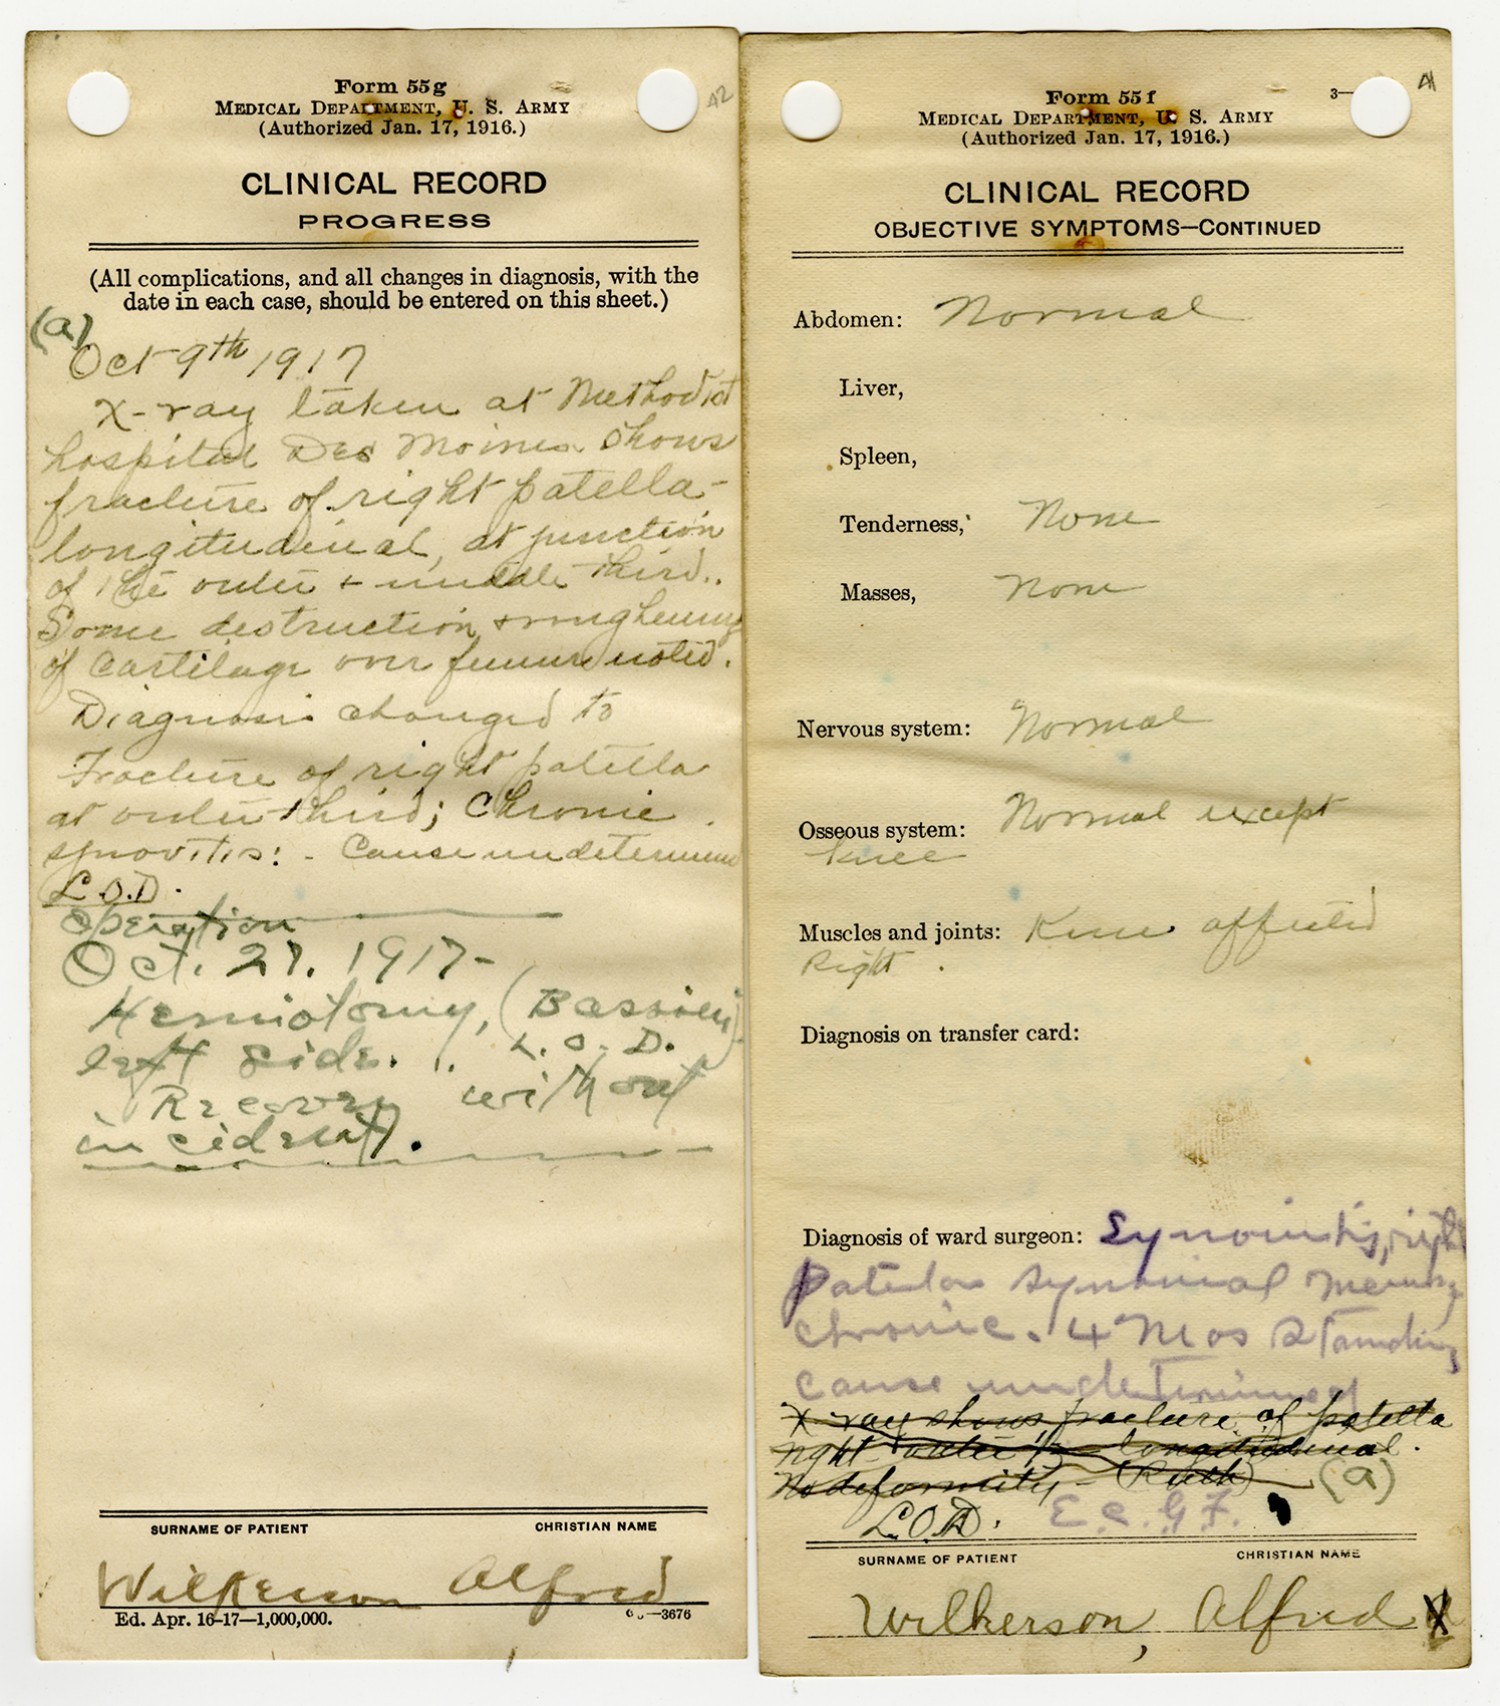 Form 55g
MEDICAL DEPARTMENT, U. S. ARMY
(Authorized Jan. 17, 1916.)
42
CLINICAL RECORD
PROGRESS
(All complications, and all changes in diagnosis, with the
date in each case, should be entered on this sheet.)
(a)
Oct 9th 1917
X-ray taken at Methodist
hospital Des Moines shows
fracture of right patella-
longitudinal, at junction
of the outer + middle third.
Some destruction + roughening
of cartilage over femur noted.
Diagnosis changed to
Fracture of right patella
at outer third; Chronic
synovitis: - Cause undetermined
L.O.D.
Operation
Oct. 27. 1917-
Herniotomy, (Bassini)
left side. L.O.D.
Recovery without
incident.
SURNAME OF PATIENT CHRISTIAN NAME
Wilkerson Alfred
Ed. Apr. 16-17—1,000,000. —3676
Form 55f
MEDICAL DEPARTMENT, U. S. ARMY
(Authorized Jan. 17, 1916.)
3—
CLINICAL RECORD
OBJECTIVE SYMPTOMS—CONTINUED
Abdomen: Normal
Liver,
Spleen,
Tenderness, None
Masses, None
Nervous system: Normal
Osseous system: Normal except
knee
Muscles and joints: Knee affected
Right
Diagnosis on transfer card:
Diagnosis of ward surgeon: Synovitis, right
Patella synovial
chronic. 4 Mos standing
cause undetermined
X-ray shows fracture of patella
right outer 1/3 longitudinal.
No deformity - (a)
L.O.D. E.C.G.F.
SURNAME OF PATIENT CHRISTIAN NAME
Wilkerson, Alfred